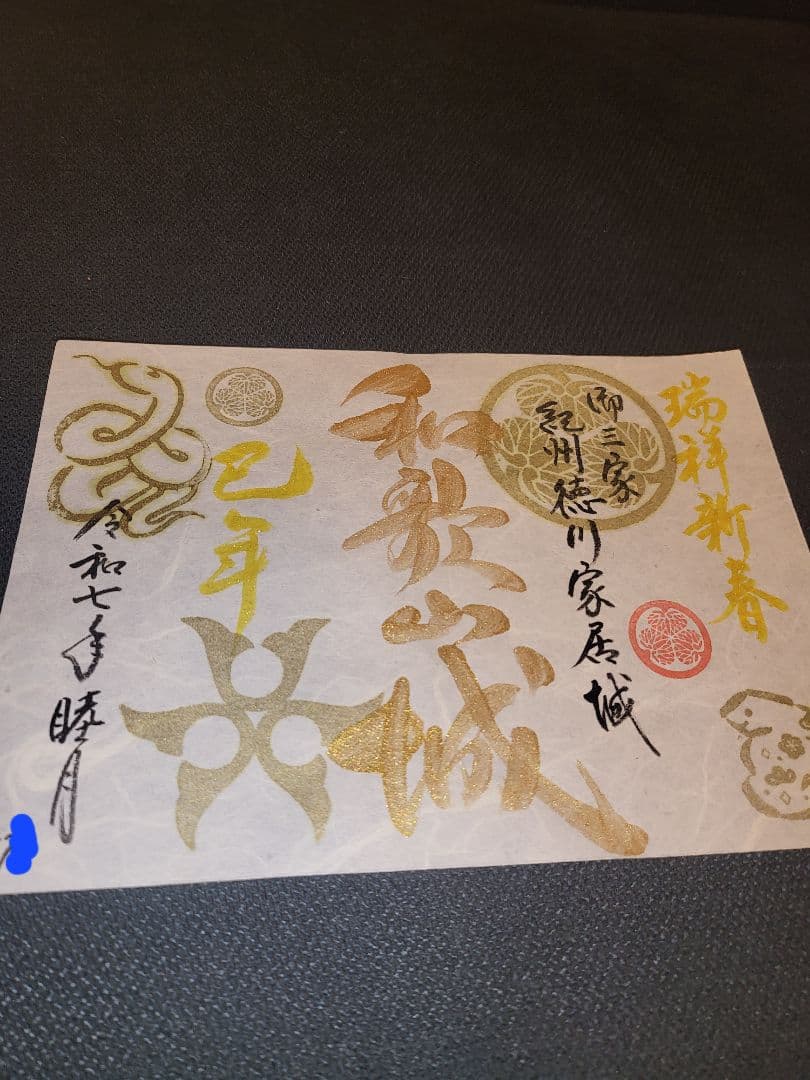 瑞祥新春
御三家
紀州徳川家居城
和歌山城
巳年
令和七年睦月